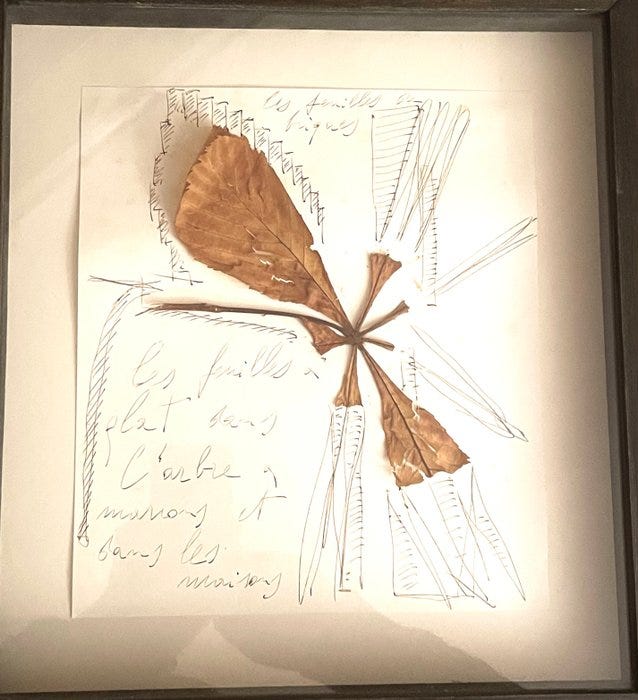 les feuilles en
briques
les feuilles à
plat dans
l'arbre à
marrons et
dans les
maisons